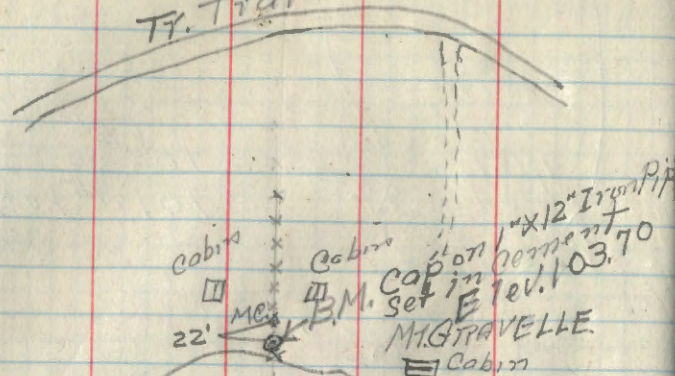 Tr.
Cabin
Cabin
B.M. Cap on 1"x12" Iron Pip
set in Cement
Elev. 103.70
MC.
22'
MT. GRAVELLE.
Cabin